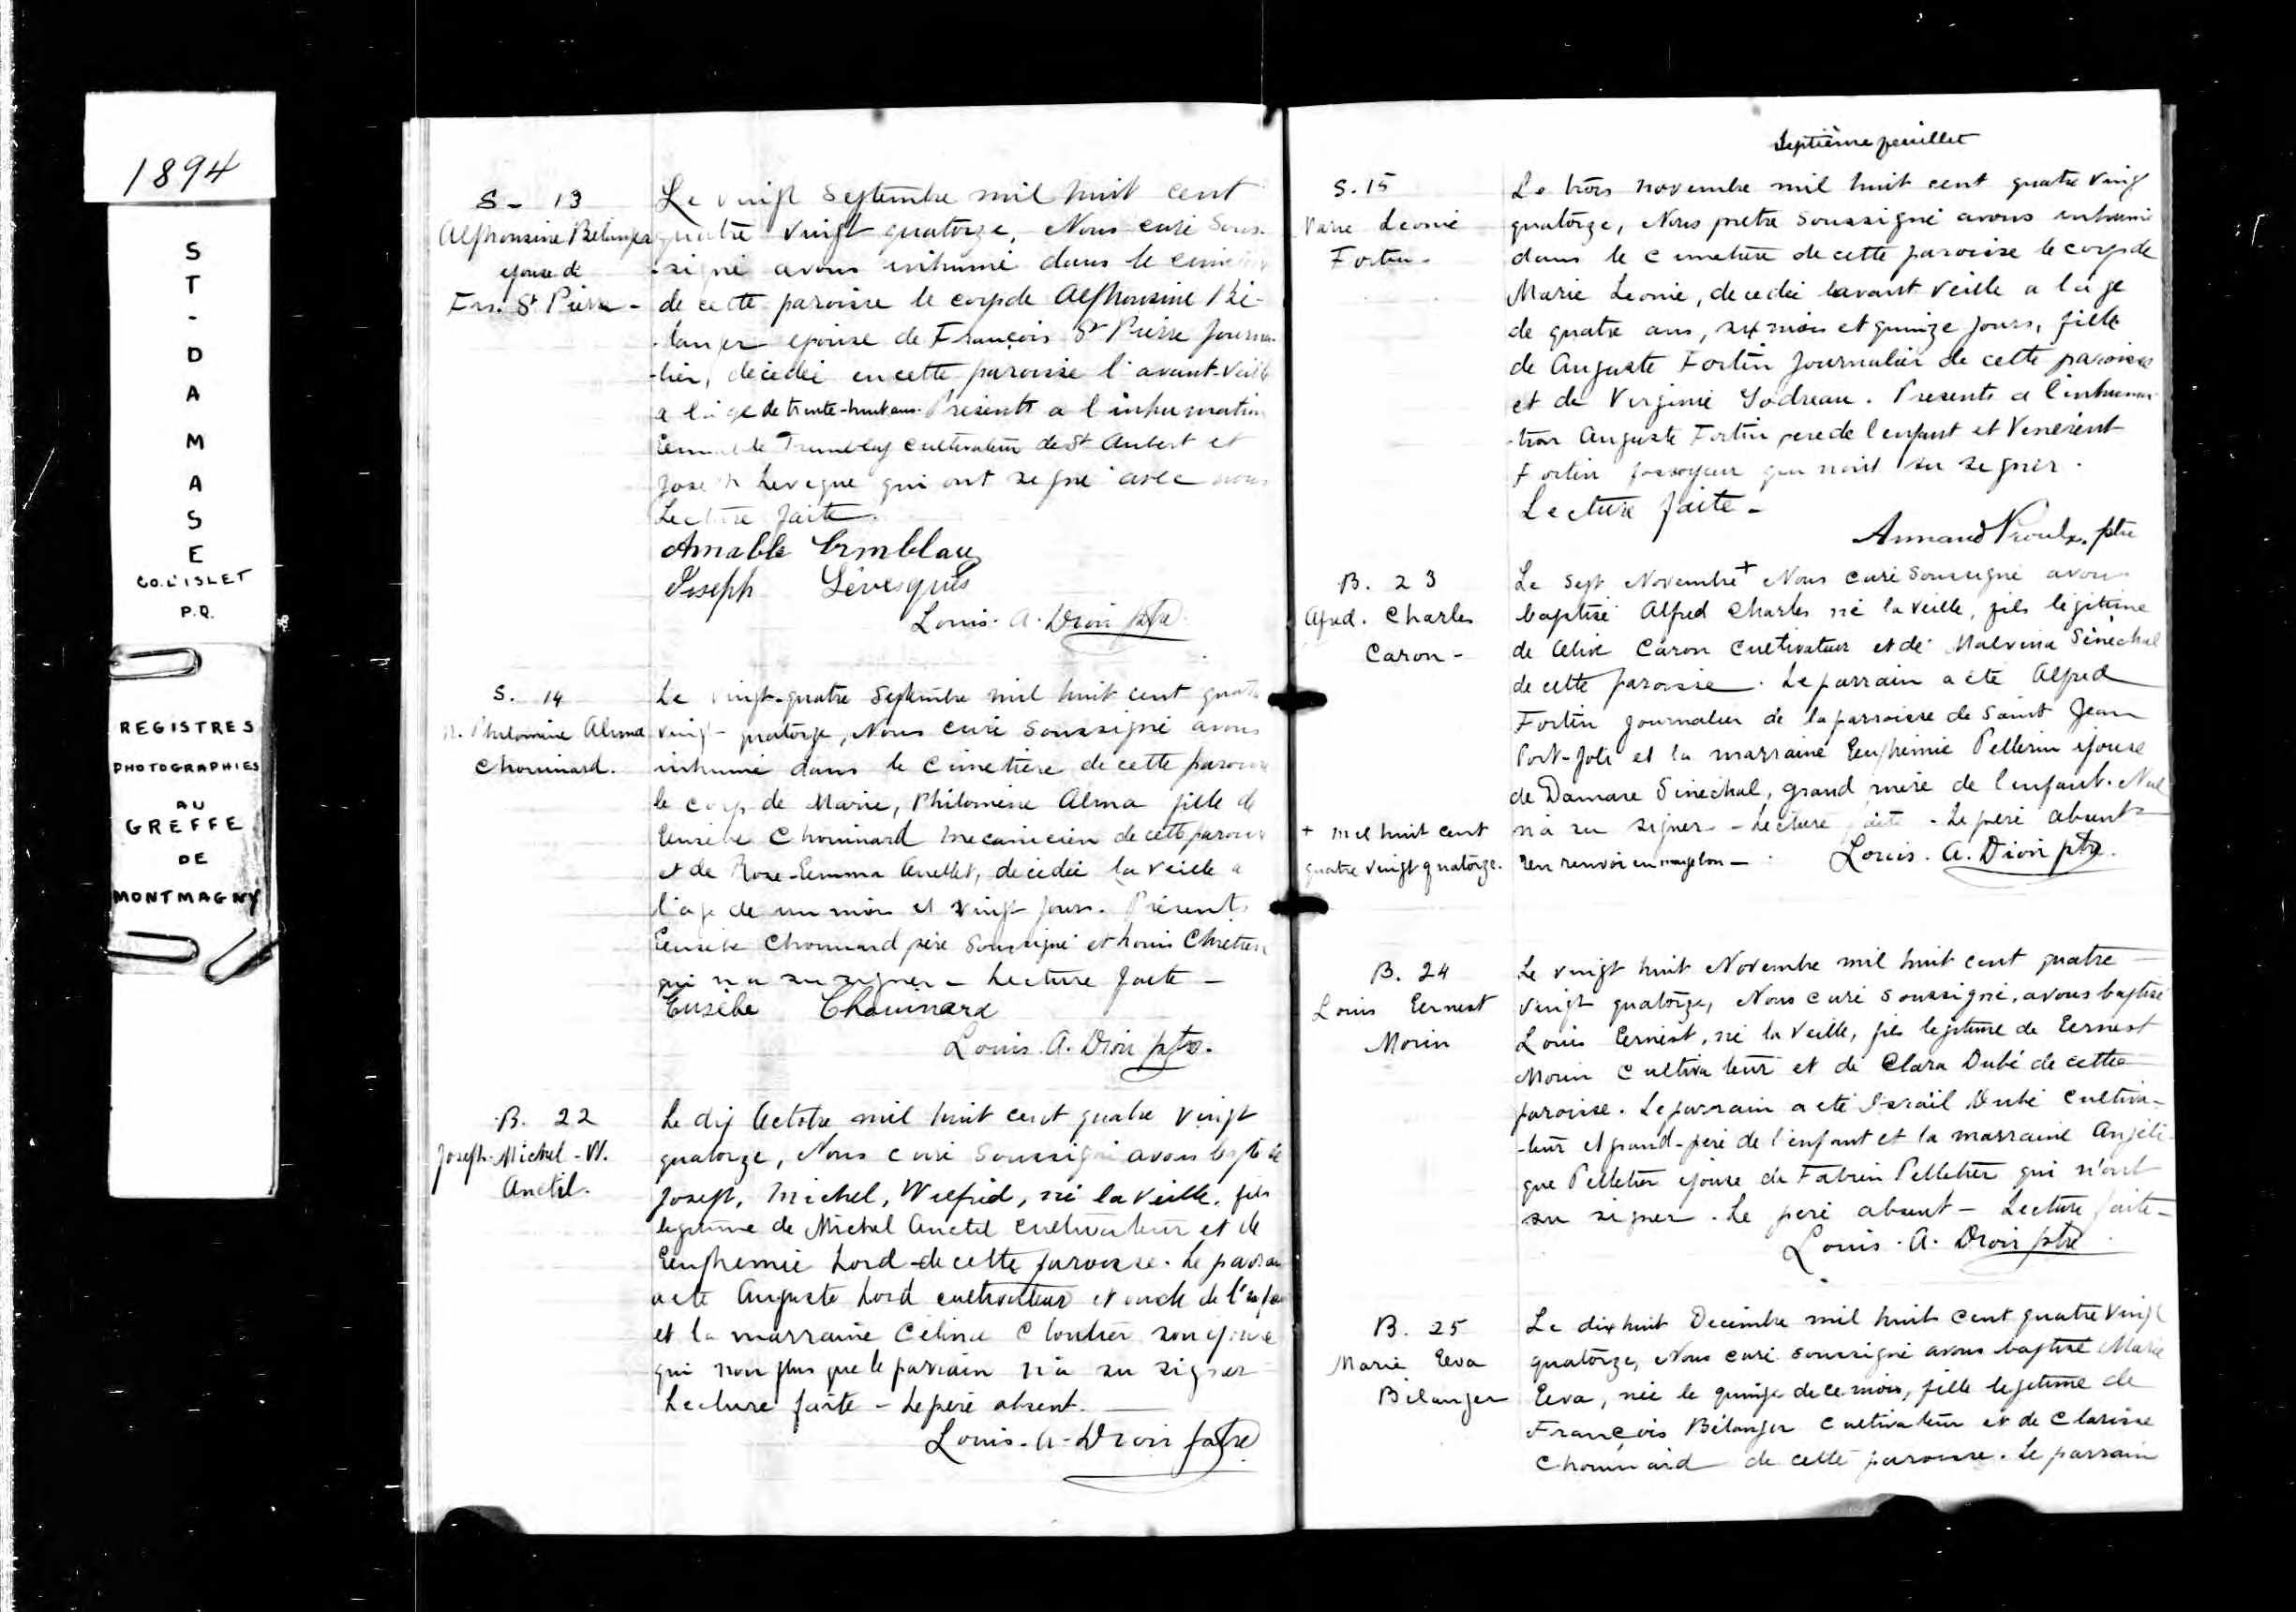 1894
S
T
-
D
A
M
A
S
E
CO. L'ISLET
P.Q.
REGISTRES
PHOTOGRAPHIES
AU
GREFFE
DE
MONTMAGNY
S - 13
Alphonsine Bélanger
epouse de
Frs. St Pierre -
Le vingt Septembre mil huit cent
quatre vingt quatorze, Nous curé Sous-
-signé avons inhumé dans le cimetière
de cette paroisse le corps de Alphonsine Bé-
-langer epouse de François St Pierre Journa-
-lier, décédée en cette paroisse l'avant-veille
a l'age de trente-huit ans. Présents a l'inhumation
Tremblay cultivateur de St Aubert et
Joseph Leveque qui ont signé avec nous
Lecture faite.
Amable Trmblay
Joseph Lévesques
Louis. A. Dion ptre
S. 14
M. Philomène Alma
Chouinard.
Le vingt-quatre Septembre mil huit cent quatre
vingt-quatorze, Nous curé Soussigné avons
inhumé dans le Cimetière de cette paroisse
le corps de Marie, Philomène Alma fille de
Eusèbe Chouinard mecanicien de cette paroisse
et de Rose-Emma Ouellet, décédée la veille a
l'age de un mois et vingt jours. Présents
Eusèbe Chouinard père Soussigné et Louis Chretien
qui n'a su signer - Lecture faite -
Eusèbe Chouinard
Louis. A. Dion ptre.
B. 22
Joseph-Michel-W.
Anctil.
Le dix Octobre mil huit cent quatre vingt
quatorze, Nous curé Soussigné avons baptisé
Joseph, Michel, Wilfrid, né la veille, fils
legitime de Michel Anctil cultivateur et de
Euphemie Lord de cette paroisse. Le parrain
a été Auguste Lord cultivateur et oncle de l'enfant
et la marraine Celina Cloutier son epouse
qui non plus que le parrain n'a su signer
Lecture faite - Le père absent.
Louis-A-Dion ptre
Septième feuillet
S. 15
Marie Leonie
Fortin -
Le trois novembre mil huit cent quatre vingt
quatorze, Nous pretre Soussigné avons inhumé
dans le cimetière de cette paroisse le corps de
Marie Leonie, decedée lavant veille a l'age
de quatre ans, six mois et quinze jours, fille
de Auguste Fortin Journalier de cette paroisse
et de Virginie Godreau. Presents a l'inhuma-
-tion Auguste Fortin pere de l'enfant et
Fortin fossoyeur qui n'ont su signer.
Lecture faite -
Armand Proulx, ptre
B. 23
Afred. Charles
Caron -
+ mil huit cent
quatre vingt quatorze.
Le Sept Novembre + Nous curé Soussigné avons
baptisé Alfred Charles né la veille, fils légitime
de Caron Cultivateur et de Malvina Sénéchal
de cette paroisse. Le parrain a été Alfred
Fortin journalier de la parroisse de Saint Jean
Port-Joli et la marraine Euphémie Pellerin epouse
de Damase Sénéchal, grand mère de l'enfant. Nul
n'a su signer - Lecture faite - Le père absent
un renvoi en marge bon - Louis. A. Dion ptre.
B. 24
Louis Eernest
Morin
Le vingt huit Novembre mil huit cent quatre
vingt quatorze, Nous curé Soussigné, avons baptisé
Louis Eernest, né la veille, fils legitime de Eernest
Morin Cultivateur et de Clara Dubé de cette
paroisse. Le parrain a été Israïl Dubé Cultiva-
-teur et grand-père de l'enfant et la marraine Angéli-
que Pelletier epouse de Fabien Pelletier qui n'ont
su signer. Le père absent - Lecture faite -
Louis. A. Dion ptre
B. 25
Marie Eeva
Bélanger
Le dix huit Decembre mil huit cent quatre vingt
quatorze, Nous curé soussigné avons baptisé Marie
Eeva, née le quinze de ce mois, fille legetime de
François Bélanger Cultivateur et de Clarisse
Chouinard de cette paroisse. Le parrain